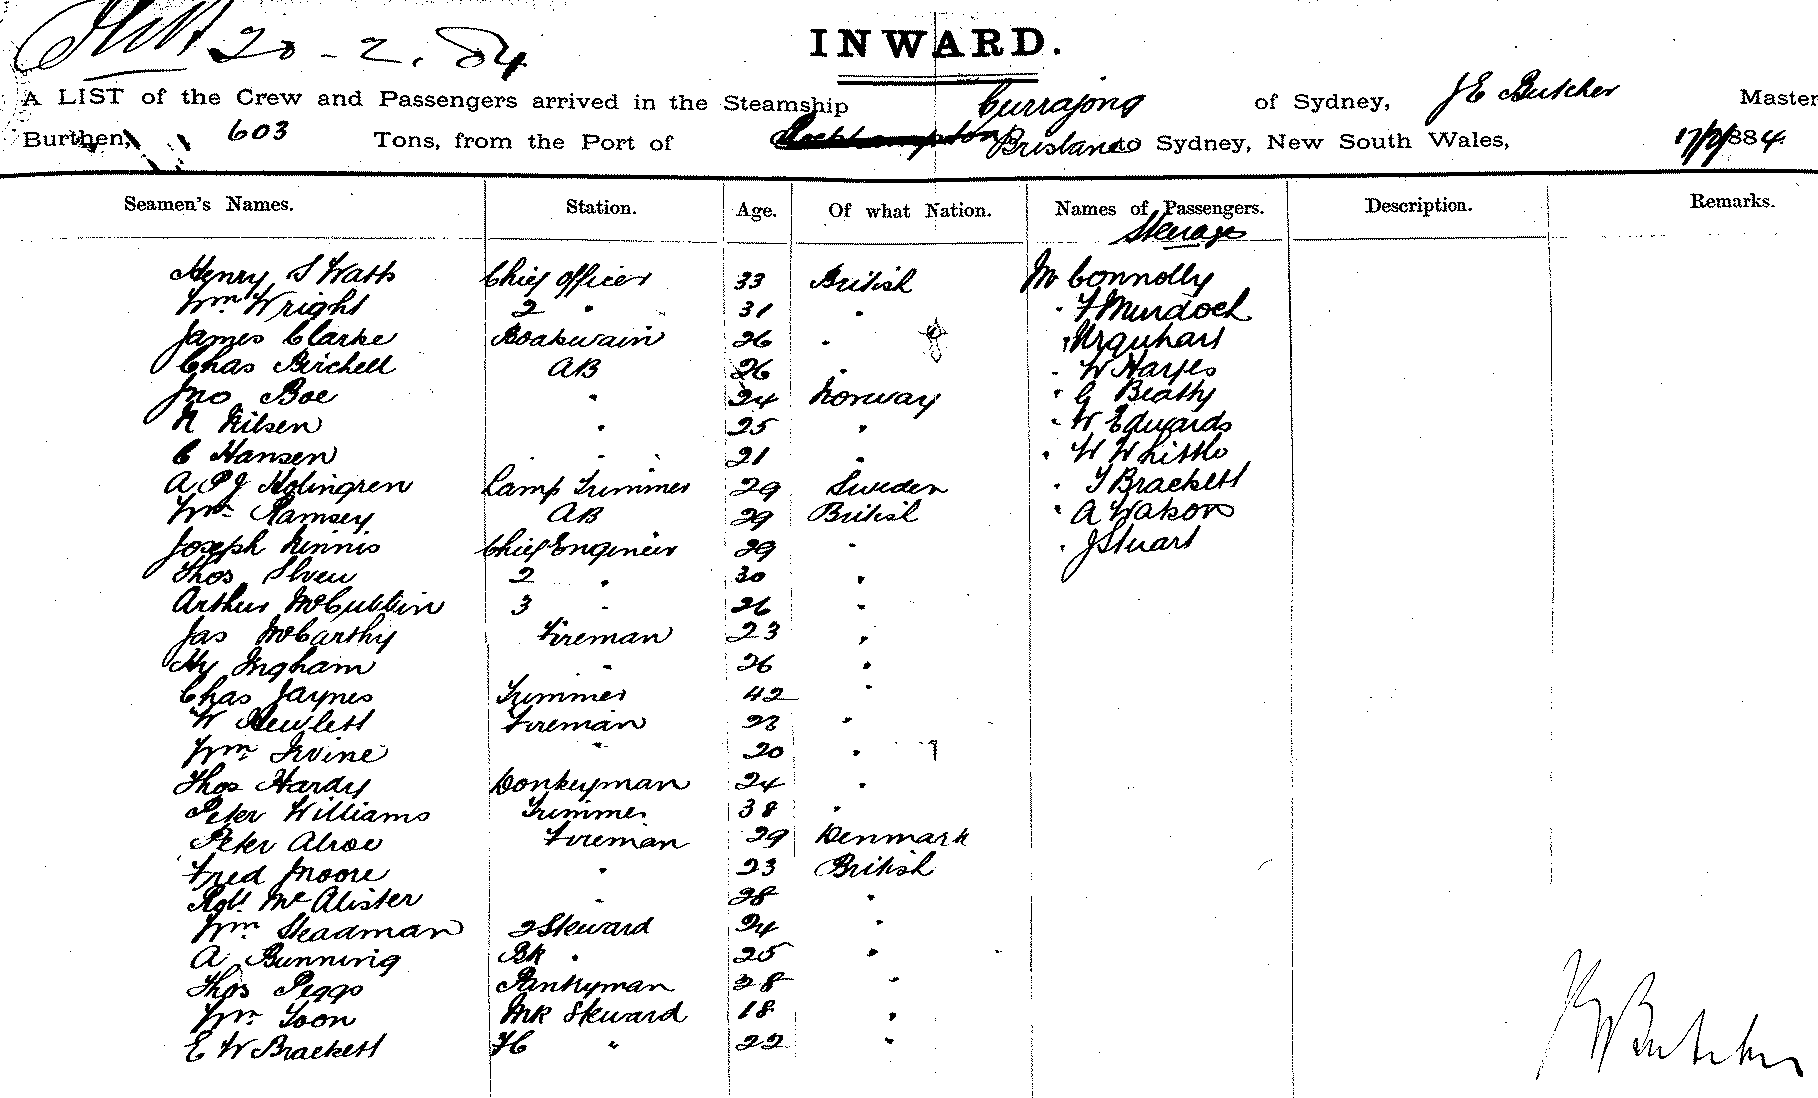 20-2.84
INWARD.
A LIST of the Crew and Passengers arrived in the Steamship Currajong of Sydney, J E Butcher Master
Burthen, 603 Tons, from the Port of Rockhampton Brisbane to Sydney, New South Wales, 17/2/1884
Seamen's Names. Station. Age. Of what Nation. Names of Passengers. Description. Remarks.
Steerage
Henry S Watts Chief Officer 33 British Mr Connolly
Wm Wright 2 " 31 " " F Murdoch
James Clarke Boatswain 26 " " Urquhart
Chas Birchell AB 26 " " W Harpes
Jno Boe " 24 Norway " G Beatty
N Nilsen " 25 " " W Edwards
C Hansen " " " 21 " " W Whittle
A P J Holmgren Lamp Trimmer 29 Sweden " T Brackett
Wm Ramsey AB 29 British " A Watson
Joseph Ninnis Chief Engineer 29 " " J Stuart
Thos 2 " 30 "
Arthur McCubbin 3 " 26 "
Jas McCarthy Fireman 23 "
Hy Ingham " 26 "
Chas Jaynes Trimmer 42 "
W Hewlett Fireman 23 "
Wm Irvine " 20 "
Thos Hardy Donkeyman 24 "
Peter Williams Trimmer 38 "
Peter Alroe Fireman 29 Denmark
Fred Moore " 23 British
Robt McAlister " 28 "
Wm Steadman 2 Steward 24 "
A Bunning Bk " 25 "
Thos Peggs Pantryman 28 "
Wm Soon Mk Steward 18 "
E W Brackett FC " 22 "
Butcher